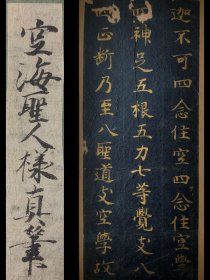 迦不可四念住空四念住與
四神足五根五力七等覺支八
四正斷乃至八聖道支空學故
空海聖人様真筆